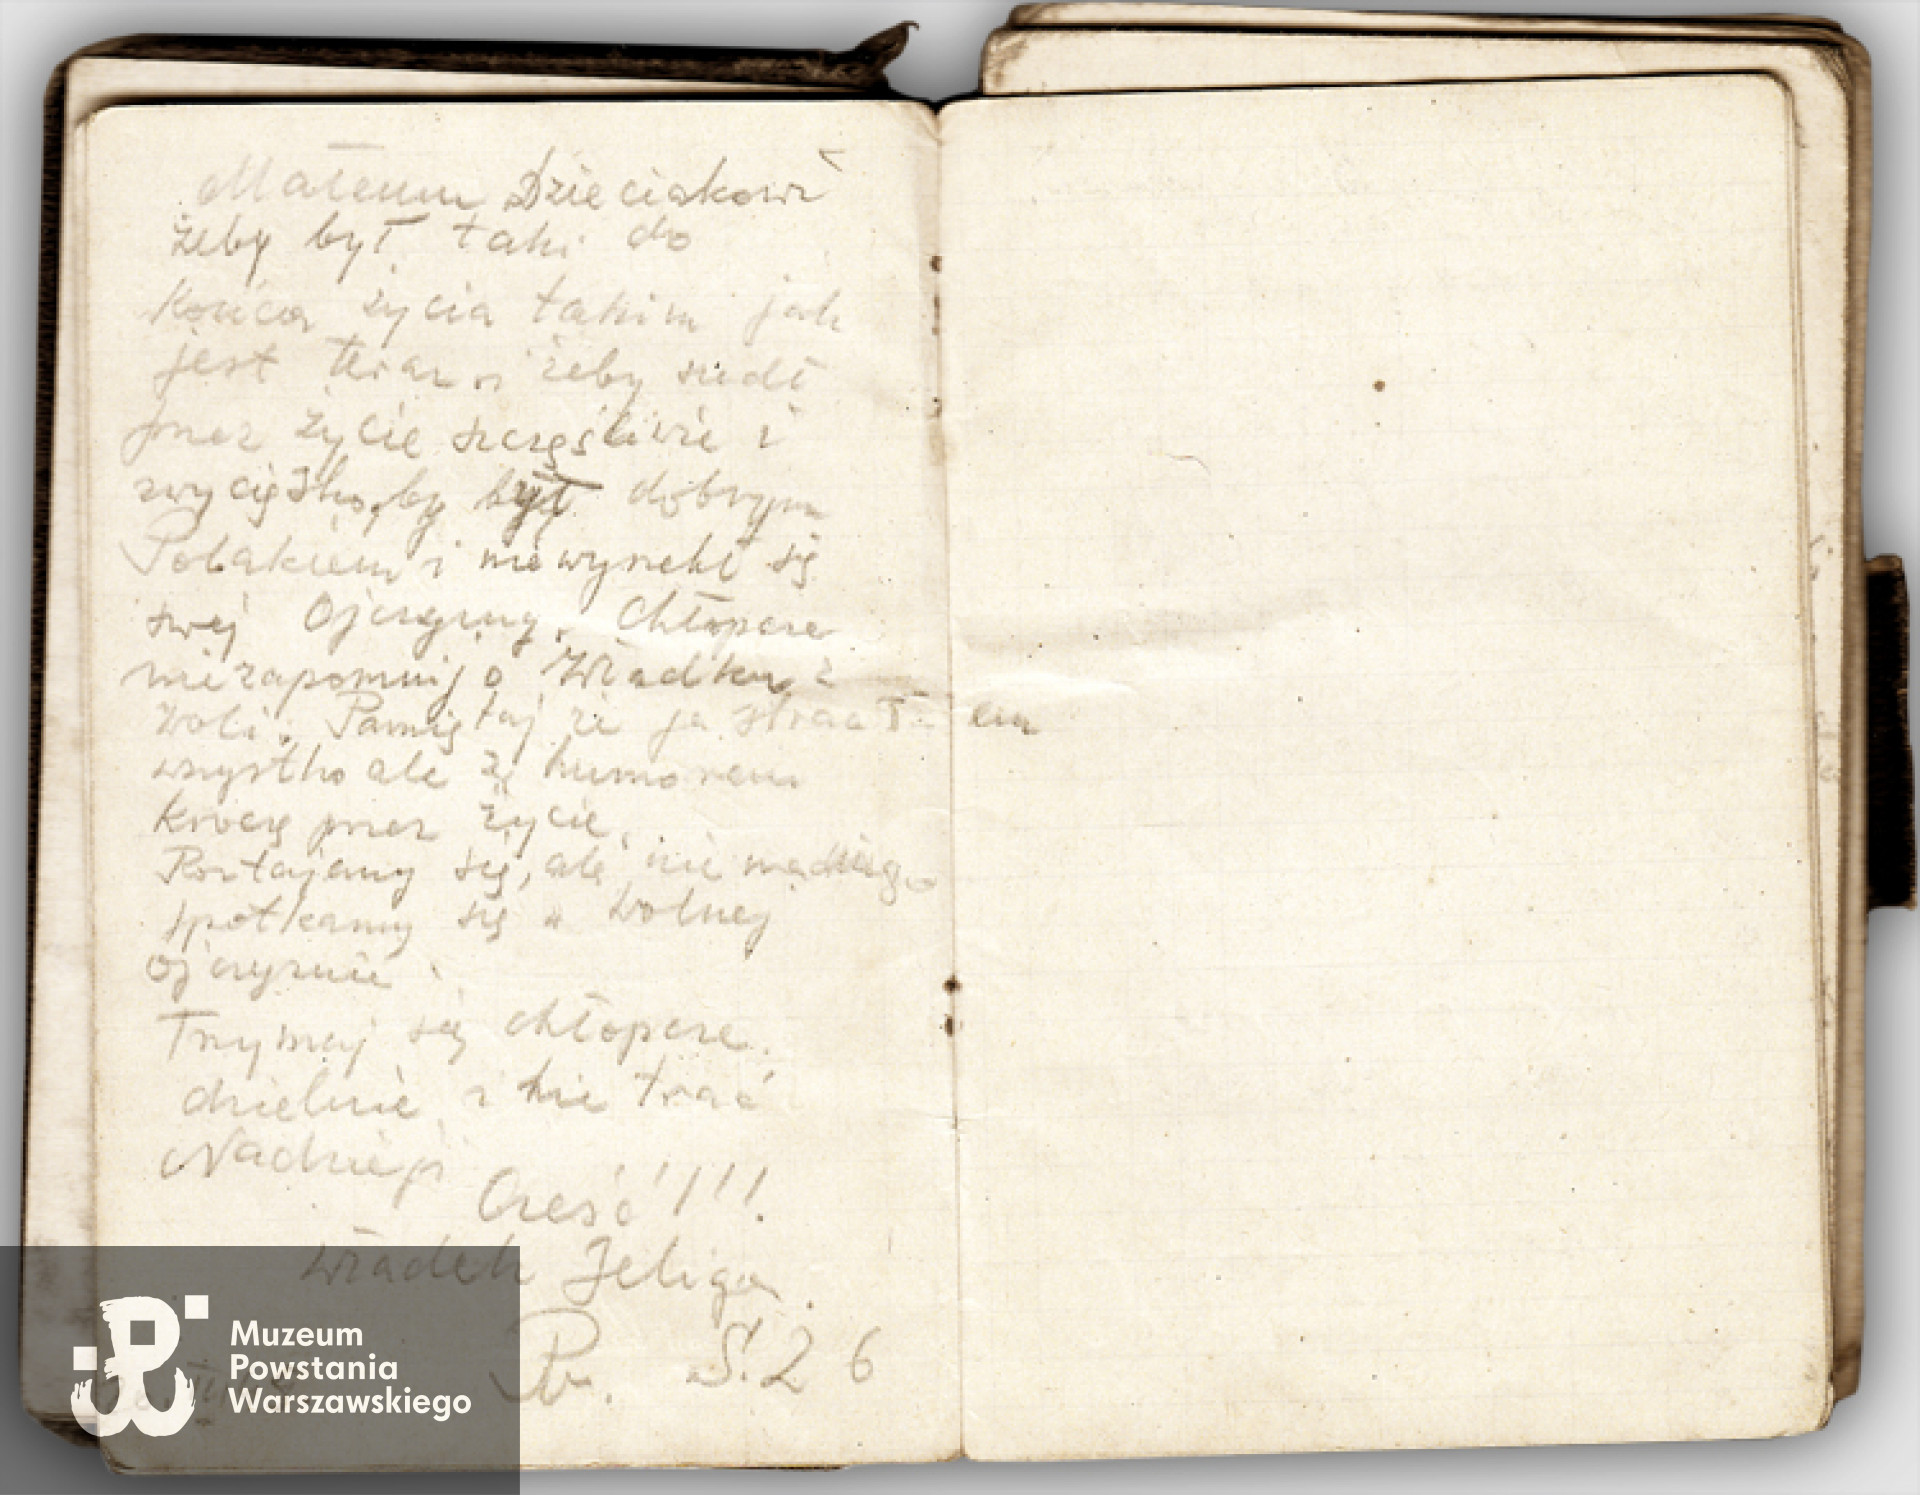 Małemu Dzieciakowi
żeby był taki do
końca życia takim jak
jest teraz, żeby szedł
przez życie szczęśliwie i
zwycięsko, by był dobrym
Polakiem i nie wyrzekł się
swej Ojczyzny. Chłopcze
nie zapomnij o Władku z
Woli. Pamiętaj że ja straciłem
wszystko ale z humorem
kroczę przez życie.
Rozstajemy się, ale nie na długo
spotkamy się w Wolnej
Ojczyznie.
Trzymaj się chłopcze
dzielnie i nie trać
Nadzieji
Cześć!!!!
Władek Żeliga
S. 26
Muzeum
Powstania
Warszawskiego